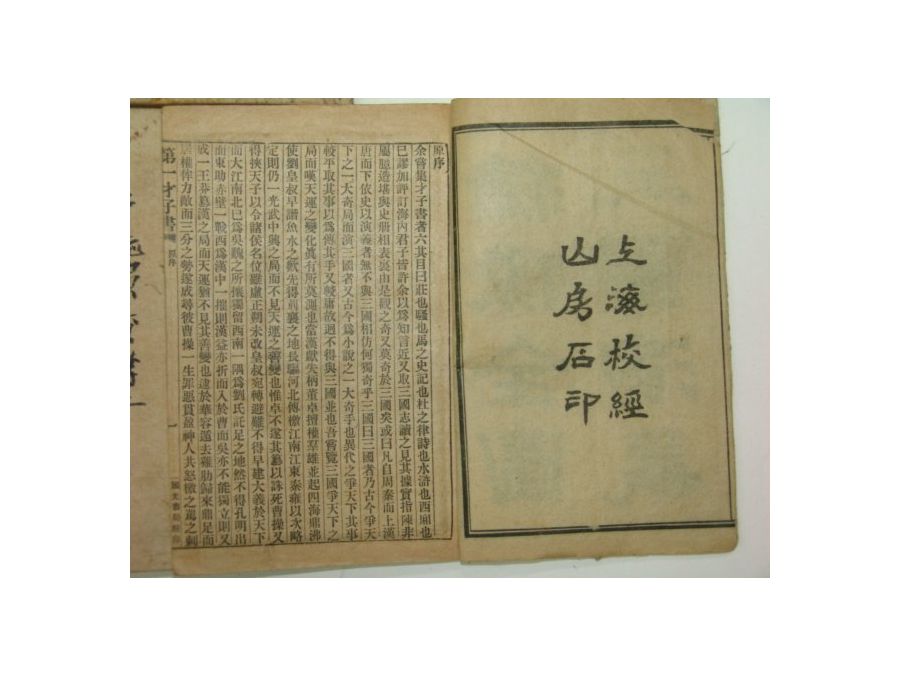 上海校經
山房石印
原序
余嘗集才子書者六其目曰莊也騷也馬之史記也杜之律詩也水滸也西廂也
已謬加評訂海內君子皆許余以爲知言近又取三國志讀之見其據實指陳非
屬臆造堪與史冊相表裏由是觀之奇又莫奇於三國矣或曰凡自周秦而上漢
唐而下依史以演義者無不與三國相仿何獨奇乎三國曰三國者乃古今爭天
下之一大奇局而演三國者又古今爲小說之一大奇手也異代之爭天下其事
較平取其事以爲傳其手又較庸故迥不得與三國並也吾嘗覽三國爭天下之
局而嘆天運之變化眞有所莫測也當漢獻失柄董卓擅權羣雄並起四海鼎沸
使劉皇叔早諧魚水之歡先得荊襄之地長驅河北傳檄江南江東秦雍以次略
定則仍一光武中興之局而不見天運之善變也惟卓不遂其篡以誅死曹操又
得挾天子以令諸侯名位雖虛正朔未改皇叔宛轉避難不得早建大義於天下
而大江南北已爲吳魏之所攘獨留西南一隅爲劉氏託足之地然不得孔明出
而東助赤壁一戰西爲漢中一摧則漢益亦折而入於曹而吳亦不能獨立則又
成一王莽篡漢之局而天運猶不見其善變也逮於華容遁去雞肋歸來鼎足而
居權侔力敵而三分之勢遂成尋彼曹操一生罪惡貫盈神人共怒檄之罵之刺
第一才子書
原序
一